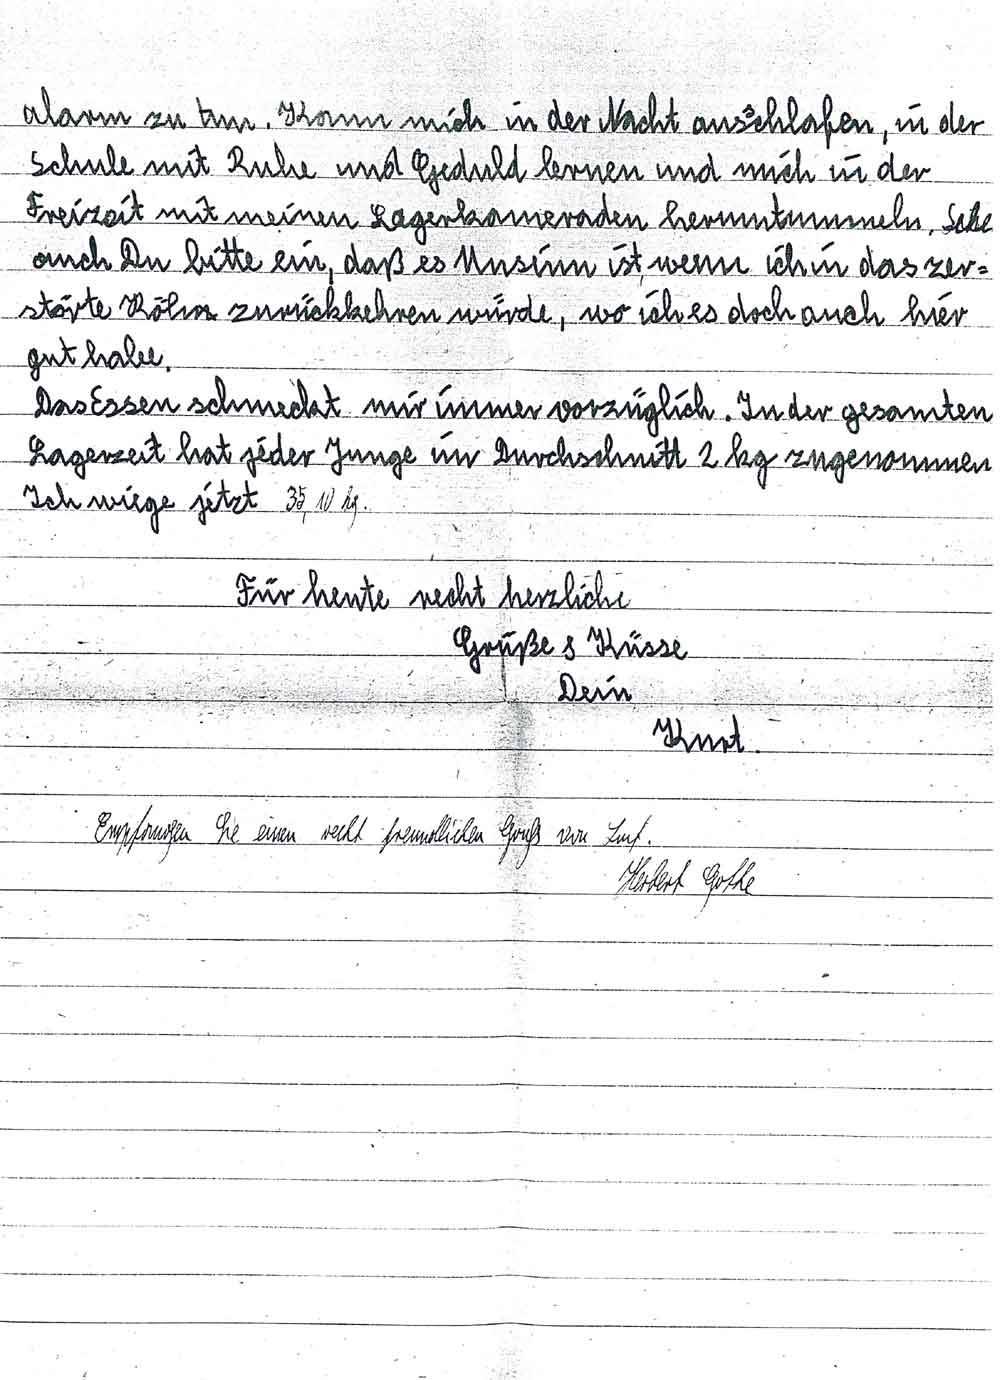 alarm zu tun. Kann mich in der Nacht ausschlafen, in der
Schule mit Ruhe und Geduld lernen und mich in der
Freizeit mit meinen Lagerkameraden herumtummeln. Sehe
auch Du bitte ein, daß es Unsinn ist, wenn ich in das zer=
störte Köln zurückkehren würde, wo ich es doch auch hier
gut habe.
Das Essen schmeckt mir immer vorzüglich. In der gesamten
Lagerzeit hat jeder Junge im Durchschnitt 2 kg zugenommen
Ich wiege jetzt 35,10 kg.
Für heute recht herzliche
Grüße & Küsse
Dein
Kurt.
Empfangen Sie einen recht freundlichen Gruß von
Herbert Gothe